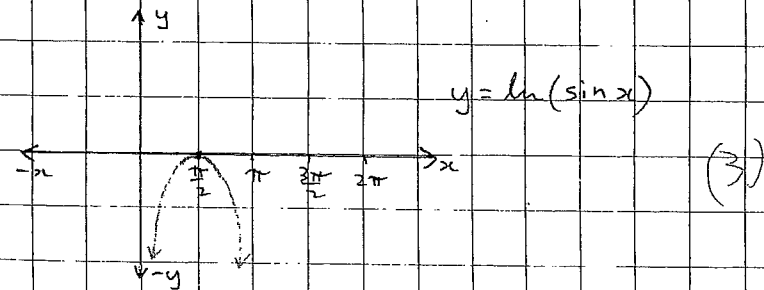 y
y = ln(sin x)
(3)
-x π/2 π 3π/2 2π x
-y